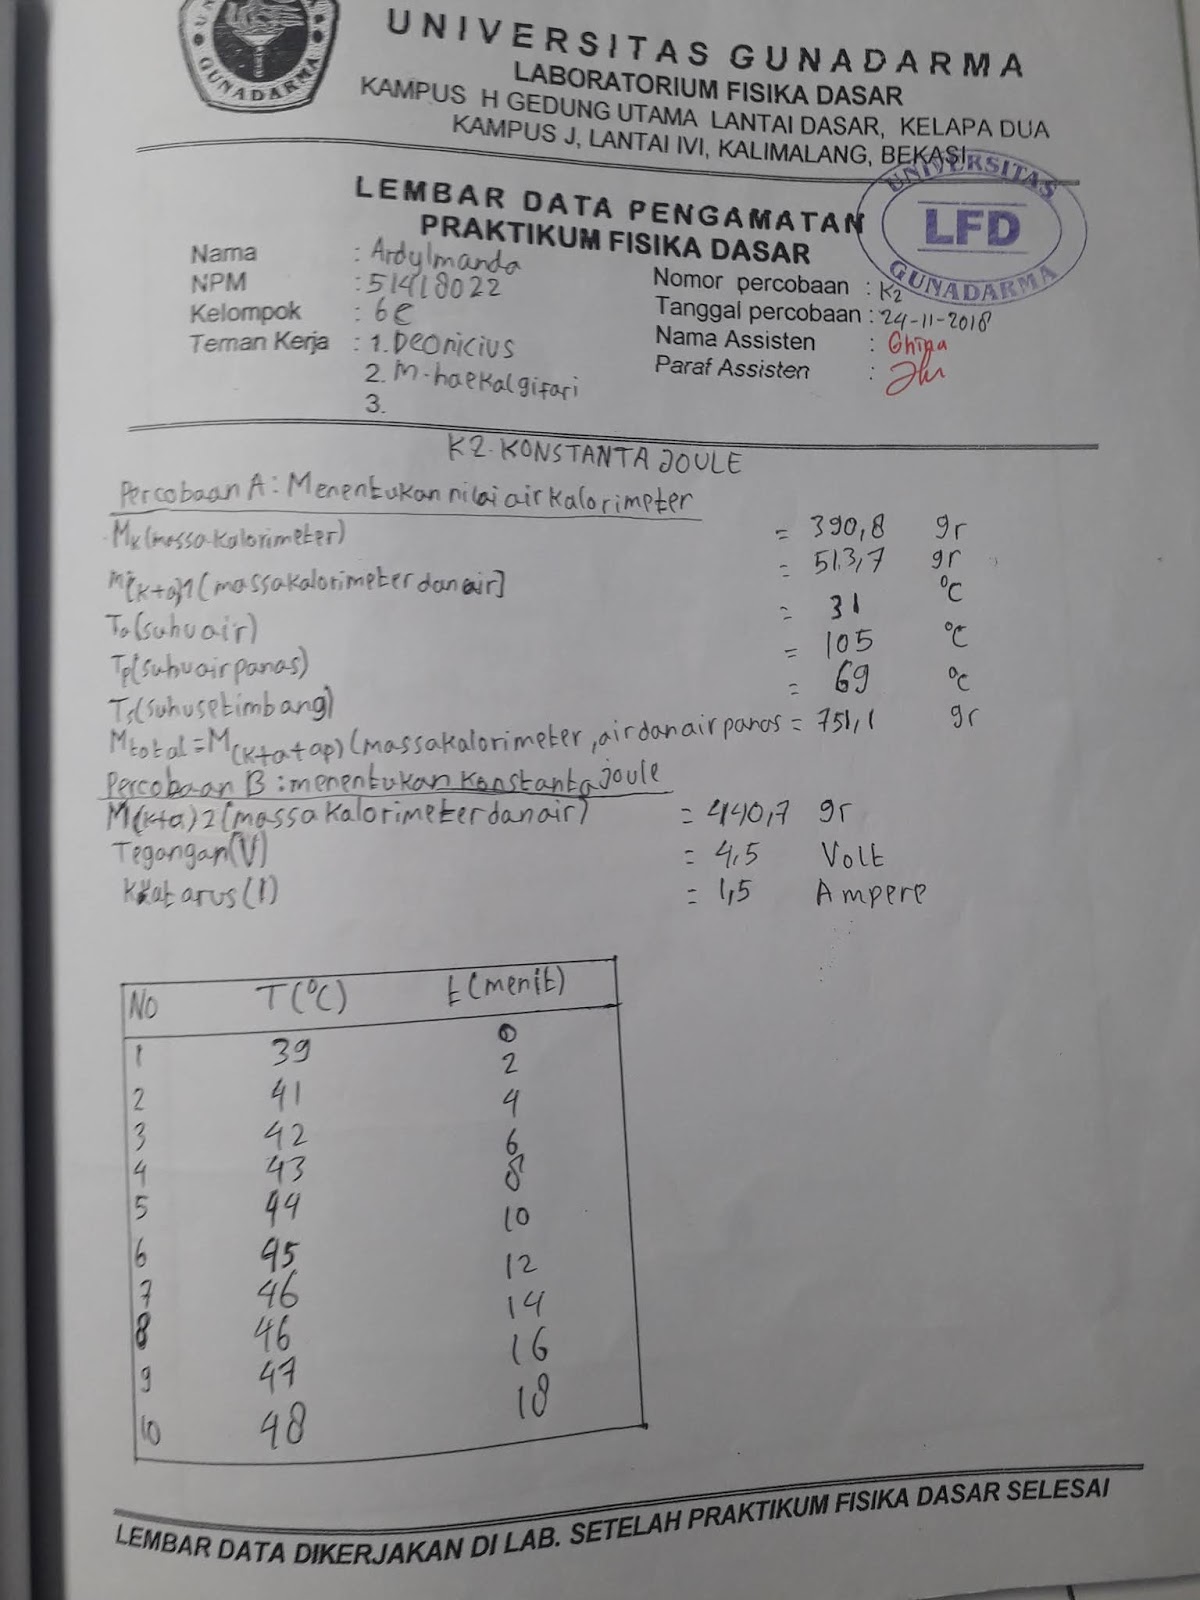 UNIVERSITAS GUNADARMA
LABORATORIUM FISIKA DASAR
KAMPUS H GEDUNG UTAMA LANTAI DASAR, KELAPA DUA
KAMPUS J, LANTAI IVI, KALIMALANG, BEKASI
GUNADARMA
UNIVERSITAS
LFD
GUNADARMA
LEMBAR DATA PENGAMATAN
PRAKTIKUM FISIKA DASAR
Nama : Ardylmanda
NPM : 51418022
Kelompok : 6e
Teman Kerja : 1. Deonicius
2. M-haekalgifari
3.
Nomor percobaan : K2
Tanggal percobaan : 24-11-2018
Nama Assisten :
Paraf Assisten :
K2. KONSTANTA JOULE
Percobaan A : Menentukan nilai air kalorimeter
Mk (massa kalorimeter) = 390,8 gr
M(k+a)1 (massa kalorimeter dan air] = 513,7 gr
Ta (suhu air) = 31 °C
Tp (suhu air panas) = 105 °C
Ts (suhu setimbang) = 69 °C
Mtotal = M(k+a+ap) (massa kalorimeter, air dan air panas = 751,1 gr
Percobaan B : menentukan konstanta joule
M(k+a)2 (massa kalorimeter dan air) = 440,7 gr
Tegangan (V) = 4,5 Volt
arus (I) = 1,5 Ampere
NO T(°C) t (menit)
1 39 0
2 41 2
3 42 4
4 43 6
5 44 8
6 45 10
7 46 12
8 46 14
9 47 16
10 48 18
LEMBAR DATA DIKERJAKAN DI LAB. SETELAH PRAKTIKUM FISIKA DASAR SELESAI